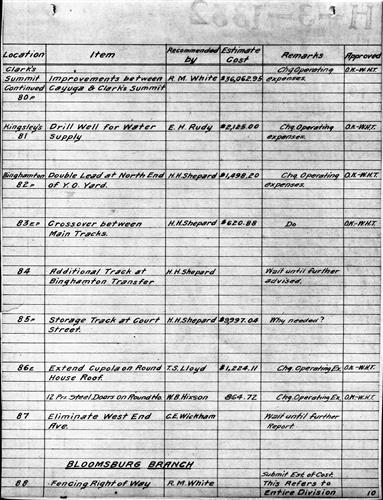 H-3-1662
Location Item Recommended by Estimate Cost Remarks Approved
Clark's Chg Operating O.K.-W.H.T.
Summit Improvements between R.M. White $36,062.95 expenses.
Continued Cayuga & Clark's Summit
80P
Kingsley's Drill Well for Water E.H. Rudy $2,125.00 Chg Operating O.K.-W.H.T.
81 Supply expenses.
Binghamton Double Lead at North End H.H. Shepard $1,498.20 Chg Operating O.K.-W.H.T.
82P of Y.O. Yard. expenses.
83EP Crossover between H.H. Shepard $620.88 Do O.K.-W.H.T.
Main Tracks.
84 Additional Track at H.H. Shepard Wait until further
Binghamton Transfer advised.
85P Storage Track at Court H.H. Shepard $9,997.04 Why needed?
Street.
86E Extend Cupola on Round T.S. Lloyd $1,224.11 Chg. Operating Ex. O.K.-W.H.T.
House Roof.
12 Prs. Steel Doors on Round Ho. W.B. Hixson 864.72 Chg. Operating Ex. O.K.-W.H.T.
87 Eliminate West End C.E. Wickham Wait until further
Ave. Report.
BLOOMSBURG BRANCH
Submit Est. of Cost.
88 Fencing Right of Way R.M. White This Refers to
Entire Division 10